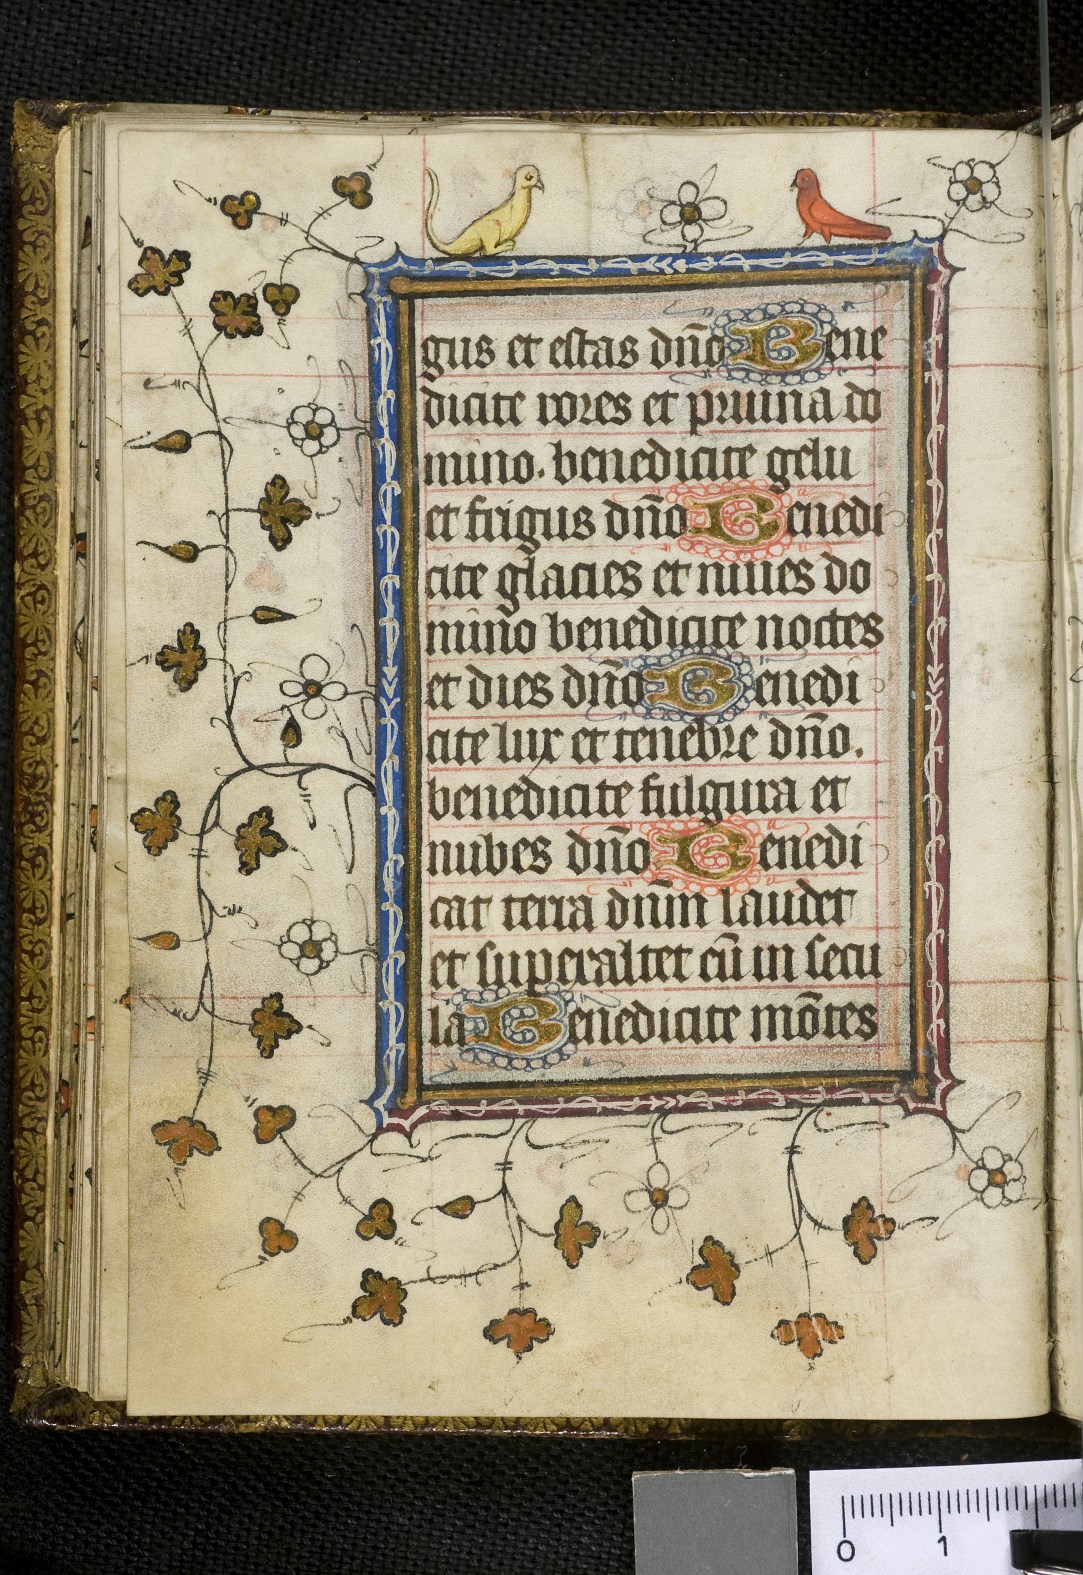 gus et estas dn̄o Bene
dicite rores et pruina do
mino. benedicite gelu
et frigus dn̄o Benedi
cite glacies et niues do
mino benedicite noctes
et dies dn̄o Benedi
cite lux et tenebre dn̄o.
benedicite fulgura et
nubes dn̄o Benedi
cat terra dn̄m laudet
et superaltet eū in secu
la Benedicite mōtes
0 1